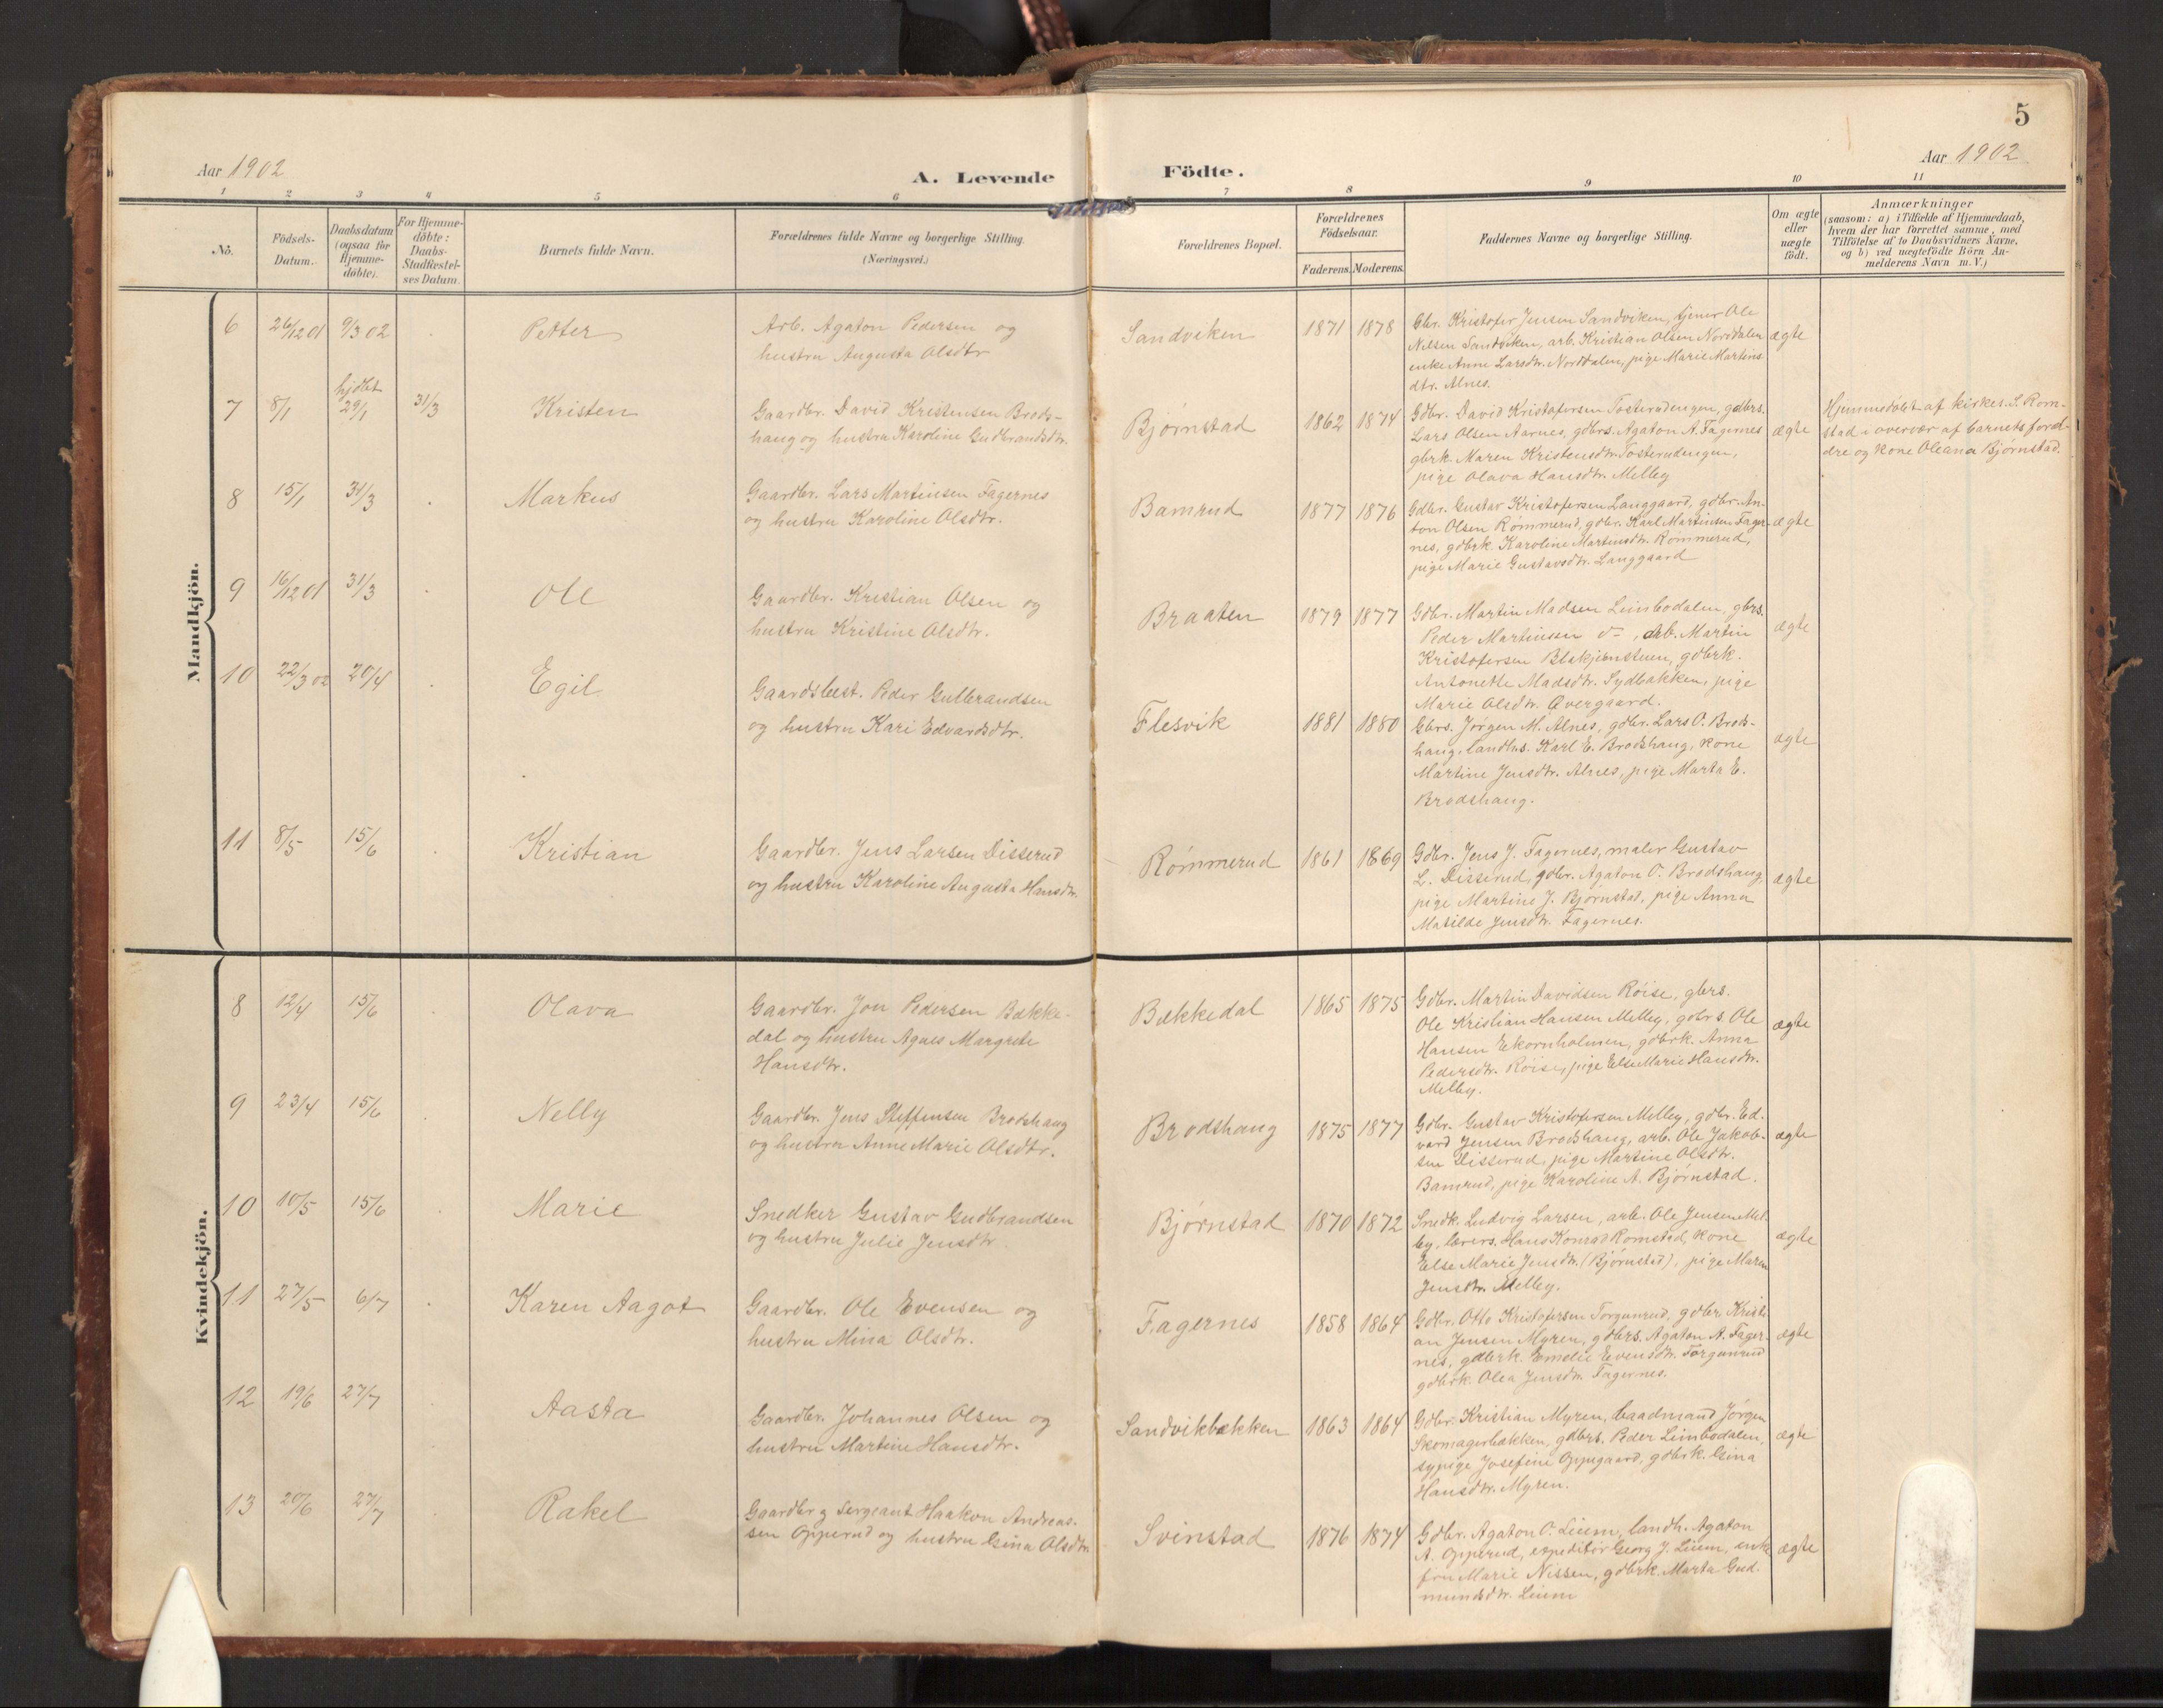 5
Aar 1902
A. Levende
Födte.
Aar 1902.
1 2 3 4 5 6 7 8 9 10 11
No.
Födsels-
Datum.
Daabsdatum
(ogsaa for
Hjemme-
döbte).
For Hjemme-
döbte:
Daabs-
Stadfæstel-
ses Datum.
Barnets fulde Navn.
Forældrenes fulde Navne og borgerlige Stilling.
(Næringsvei.)
Forældrenes Bopæl.
Forældrenes
Födselsaar.
Faderens. Moderens.
Faddernes Navne og borgerlige Stilling.
Om ægte
eller
uægte
födt.
Anmærkninger
(saasom: a) i Tilfælde af Hjemmedaab,
hvem der har forrettet samme, med
Tilföielse af to Daabsvidners Navne,
og b) ved uægtefödte Börn An-
melderens Navn m. V.)
Mandkjön.
6 26/12 01 9/3 02 Petter
Arb. Agaton Pedersen og
hustru Augusta Olsdtr
Sandviken 1871 1878
Gbr. Kristofer Jensen Sandviken, tjener Ole
Nilsen Sandviken, arb. Kristian Olsen Norddalen
enke Anne Larsdtr. Norddalen, pige Marie Martins
dtr. Alnes.
ægte
7 8/1 hjdbt 29/1 31/3 Kristen
Gaardbr. David Kristensen Brods-
haug og hustru Karoline Gudbrandsdtr.
Bjørnstad 1862 1874
Gdbr. David Kristofersen Tosterudengen, gdbrs.
Lars Olsen Aarnes, gdbrs. Agaton A. Fagernes
gbrk. Maren Kristensdtr. Tosterudengen,
pige Olava Hansdtr. Melley
ægte
Hjemmedøbt af kirkes. S. Rom-
stad i overvær af barnets foræl-
dre og kone Oleana Bjørnstad.
8 15/1 31/3 Markus
Gaardbr. Lars Martinsen Fagernes
og hustru Karoline Olsdtr.
Bamrud 1877 1876
Gdbr. Gustav Kristofersen Langgaard, gdbr. An-
ton Olsen Rømmerud, gdbr. Karl Martinsen Fager-
nes, gdbrk. Karoline Martinsdtr. Rømmerud,
pige Marie Gustavsdtr. Langgaard
ægte
9 16/12 01 31/3 Ole
Gaardbr. Kristian Olsen og
hustru Kristine Olsdtr.
Braaten 1879 1877
Gdbr. Martin Madsen Limbodalen, gbrs.
Peder Martinsen d–, arb. Martin
Kristofersen Blakjernstuen, gdbrk.
Antonette Madsdtr. Sydbakken, pige
Marie Olsdtr. Overgaard.
ægte
10 22/3 02 20/4 Egil
Gaardsbest. Peder Gulbrandsen
og hustru Kari Edvardsdtr.
Flesvik 1881 1880
Gbrs. Jørgen M. Alnes, gdbr. Lars O. Brods-
haug, landhs. Karl E. Brodshaug, kone
Martine Jensdtr. Alnes, pige Marta E.
Brodshaug.
ægte
11 8/5 15/6 Kristian
Gaardbr. Jens Larsen Disserud
og hustru Karoline Augusta Hansdtr.
Rømmerud 1861 1869
Gdbr. Jens J. Fagernes, maler Gustav
L. Disserud, gdbr. Agaton O. Brodshaug,
pige Martine J. Bjørnstad, pige Anna
Matilde Jensdtr. Fagernes.
ægte
Kvindekjön.
8 12/4 15/6 Olava
Gaardbr. Jon Pedersen Bække-
dal og hustru Agnes Margrete
Hansdtr.
Bækkedal 1865 1875
Gdbr. Martin Davidsen Röise, gbrs.
Ole Kristian Hansen Melley, gdbrs. Ole
Hansen Ekornholmen, gdbrk. Anna
Pedersdtr. Röise, pige Else Marie Hansdtr.
Melley.
ægte
9 23/4 15/6 Nelly
Gaardbr. Jens Steffensen Brodshaug
og hustru Anne Marie Olsdtr.
Brodshaug 1875 1877
Gdbr. Gustav Kristofersen Melley, gdbr. Ed-
vard Jensen Brodshaug, arb. Ole Jakob-
sen Disserud, pige Martine Olsdtr.
Bamrud, pige Karoline A. Bjørnstad.
ægte
10 10/5 15/6 Marie
Snedker Gustav Gudbrandsen
og hustru Julie Jensdtr.
Bjørnstad 1870 1872
Snedk. Ludvig Larsen, arb. Ole Jensen Mel-
ley, lærers. Hans Konrad Romstad, kone
Else Marie Jensdtr. (Bjørnstad), pige Maren
Jensdtr. Melley.
ægte
11 27/5 6/7 Karen Aagot
Gaardbr. Ole Evensen og
hustru Mina Olsdtr.
Fagernes 1858 1864
Gdbr. Otto Kristofersen Torgunrud, gdbr. Kristi-
an Jensen Myren, gdbrs. Agaton A. Fager-
nes, gdbrk. Emelie Evensdtr. Torgunrud
gdbrk. Olea Jensdtr. Fagernes.
ægte
12 19/6 27/7 Aasta
Gaardbr. Johannes Olsen og
hustru Martine Hansdtr.
Sandvikbækken 1863 1864
Gdbr. Kristian Myren, baadmand Jørgen
Skomagerbakken, gdbrs. Peder Limbodalen,
sypige Josefine Oppegaard, gdbrk. Gina
Hansdtr. Myren.
ægte
13 20/6 27/7 Rakel
Gaardbr og Sergeant Haakon Andreas-
sen Opperud og hustru Gina Olsdtr.
Svinstad 1876 1874
Gdbr. Agaton O. Lium, landh. Agaton
A. Opperud, expeditör Georg J. Lium, enke
fru Marie Nissen, gdbrk. Marta Gud-
mundsdtr. Lium
ægte